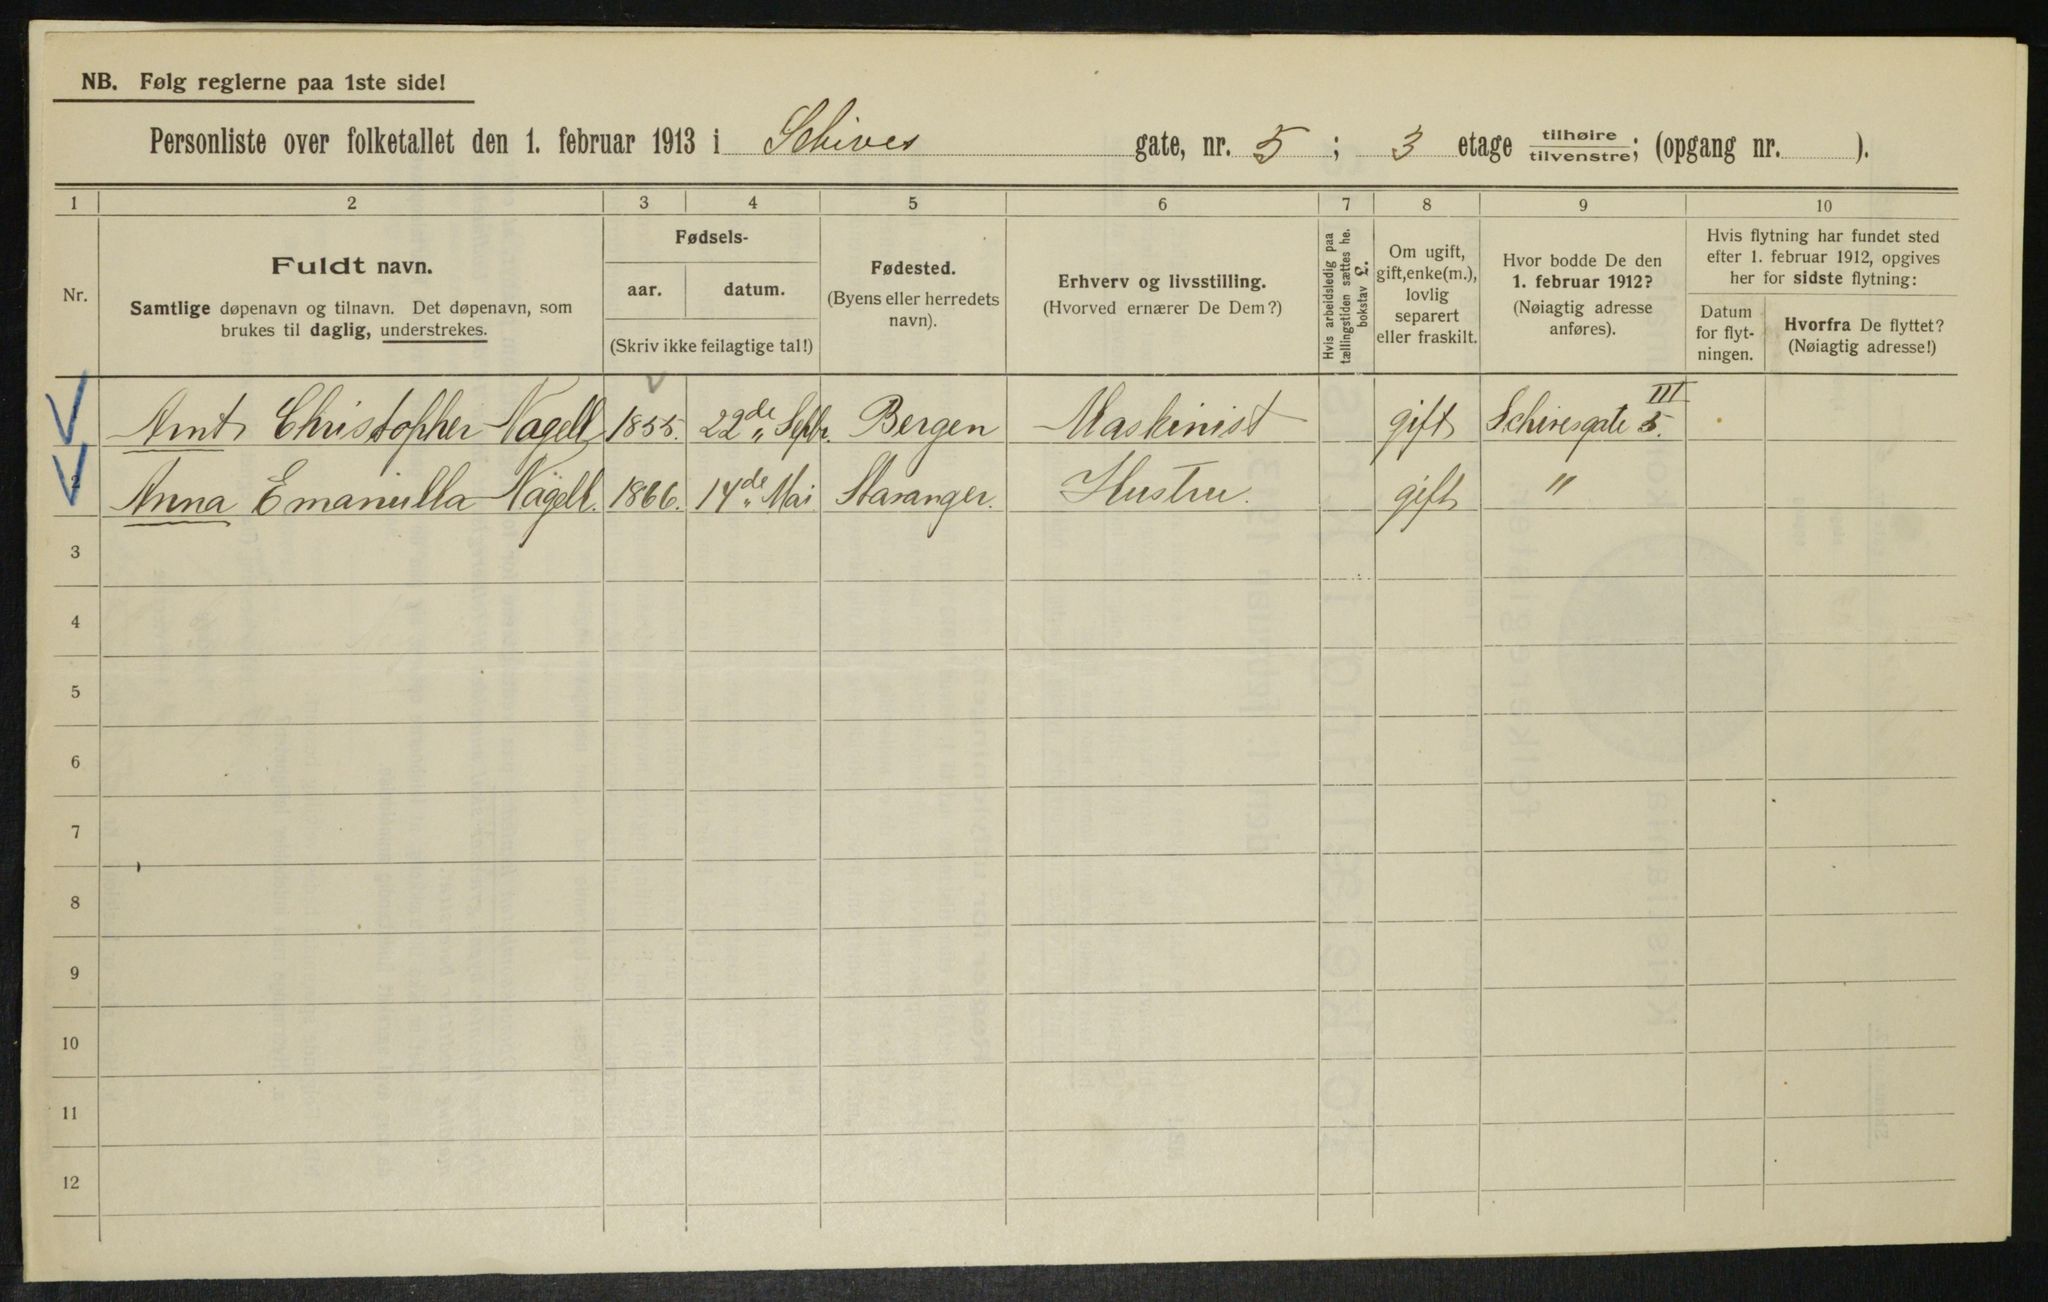 NB. Følg reglerne paa 1ste side!
Personliste over folketallet den 1. februar 1913 i Schives gate, nr. 5; 3 etage tilhøire/tilvenstre; (opgang nr. ).
1 2 3 4 5 6 7 8 9 10
Nr.
Fuldt navn.
Samtlige døpenavn og tilnavn. Det døpenavn, som
brukes til daglig, understrekes.
Fødsels-
aar. datum.
(Skriv ikke feilagtige tal!)
Fødested.
(Byens eller herredets
navn).
Erhverv og livsstilling.
(Hvorved ernærer De Dem?)
Hvis arbeidsledig paa
tællingstiden sættes he.
bokstav L.
Om ugift,
gift, enke(m.),
lovlig
separert
eller fraskilt.
Hvor bodde De den
1. februar 1912?
(Nøiagtig adresse
anføres).
Hvis flytning har fundet sted
efter 1. februar 1912, opgives
her for sidste flytning:
Datum
for flyt-
ningen.
Hvorfra De flyttet?
(Nøiagtig adresse!)
Arnt Christopher Nagell 1855. 22de Septbr. Bergen Maskinist gift Schivesgate 5 III
2 Anna Emanuella Nagell. 1866. 14de Mai Stavanger. Hustru. gift "
3
4
5
6
7
8
9
10
11
12